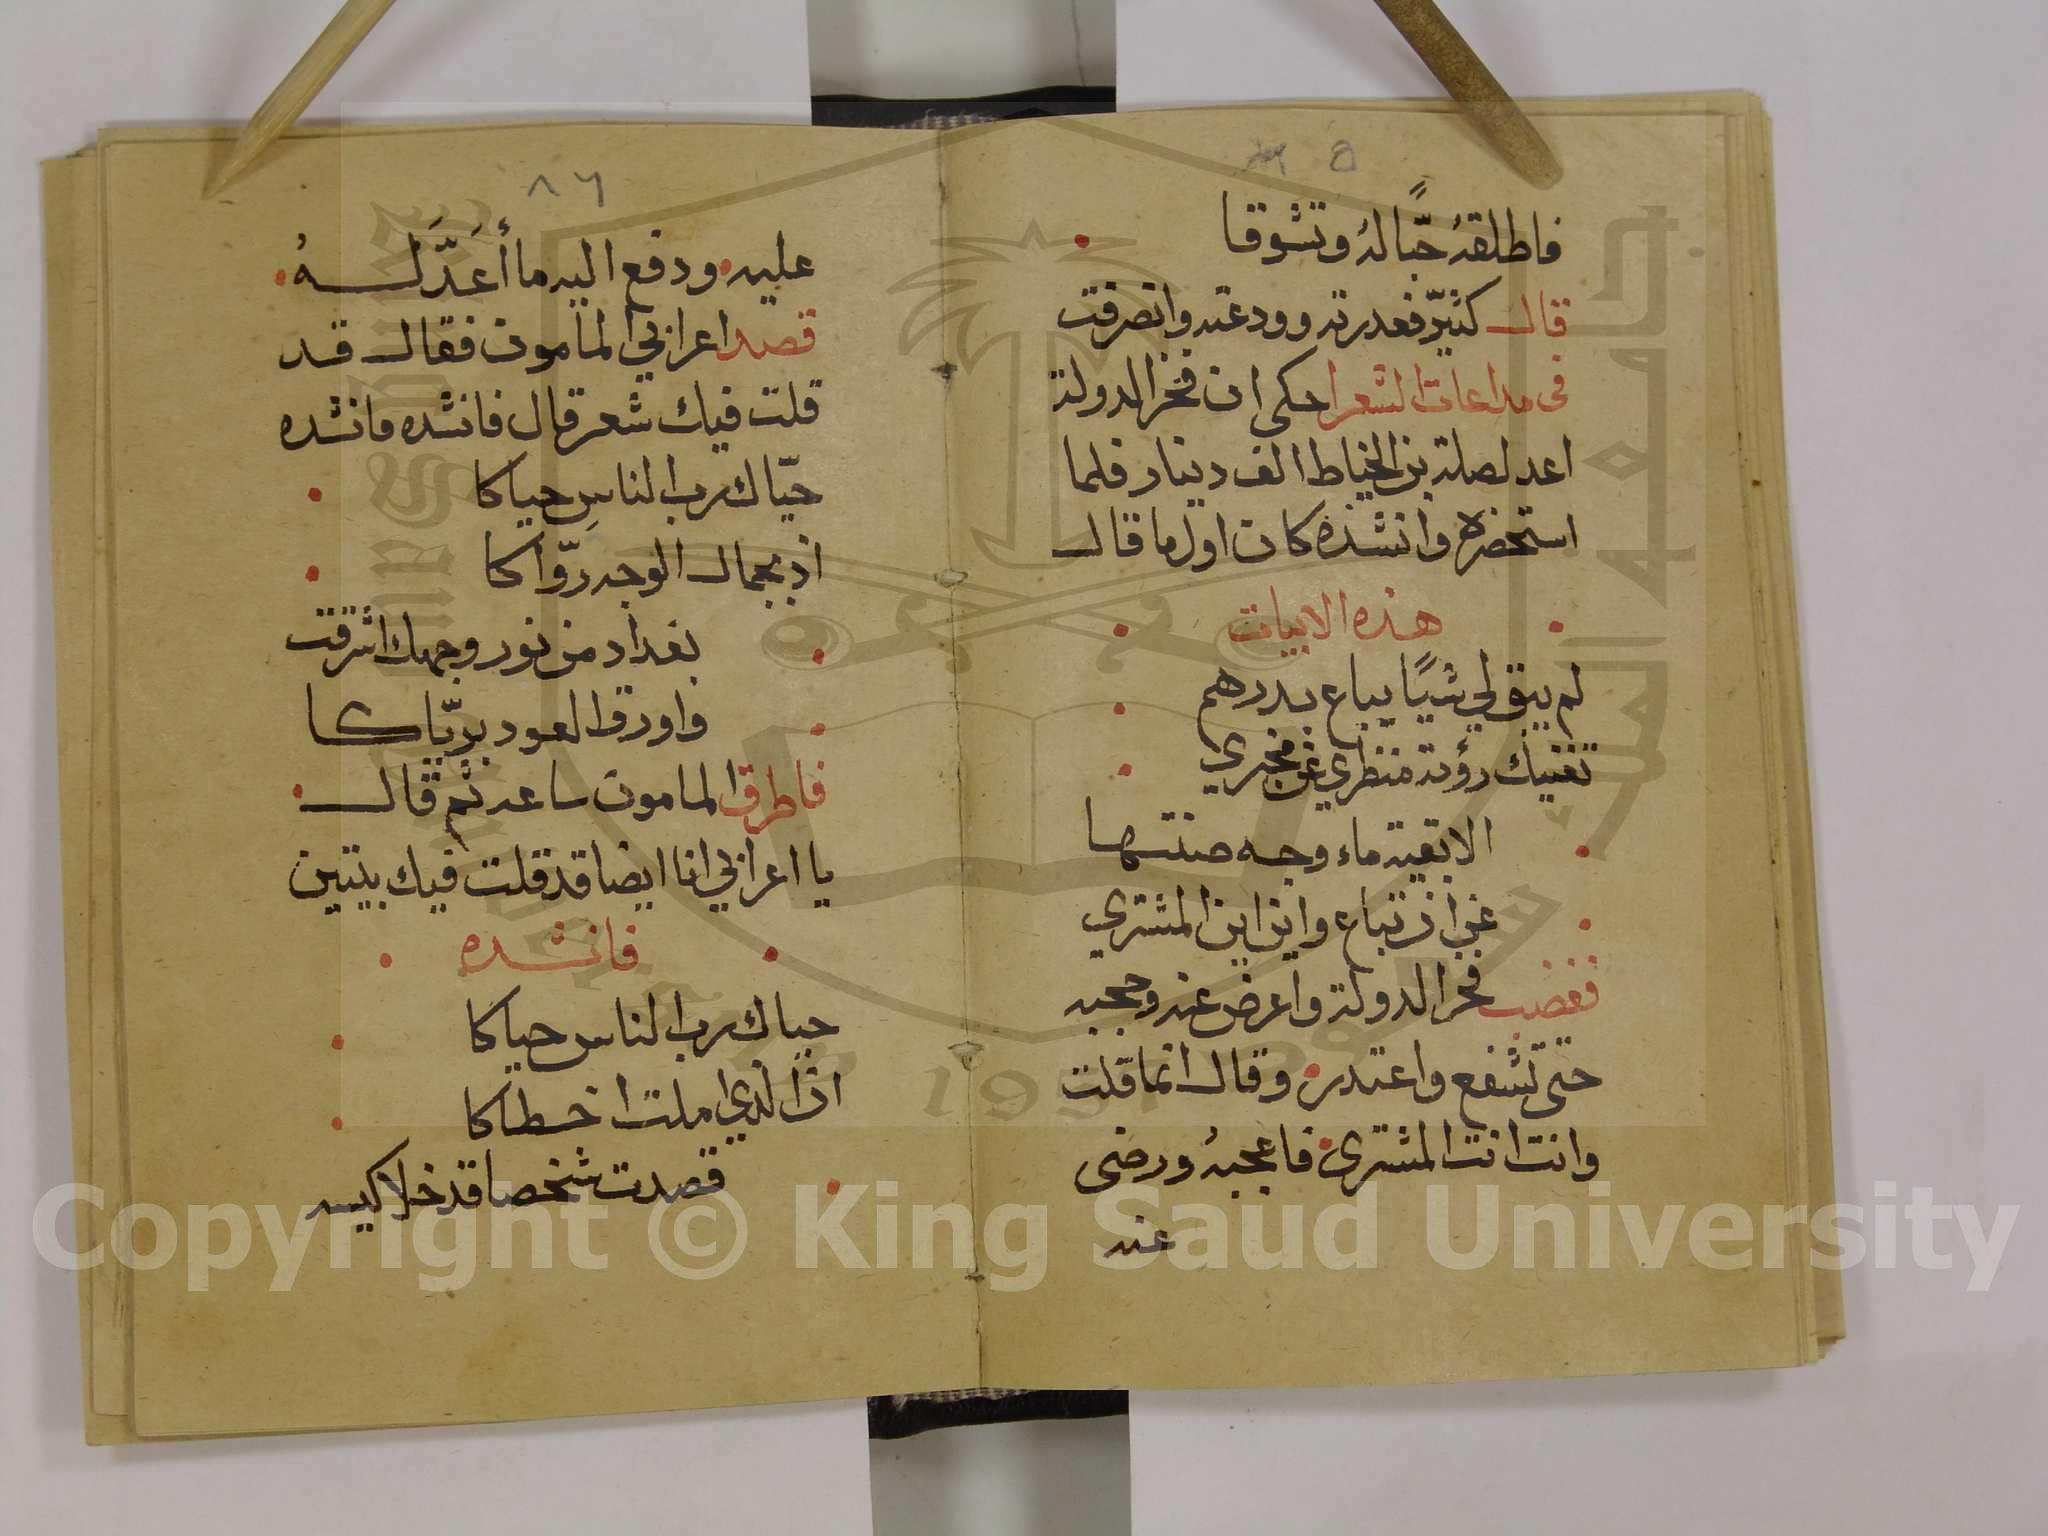 فاطلقهُ حبًّا لهُ وتشوقا
قال كثيّر فعذرته وودعته وانصرفت
فى مداعات الشعرا حكى ان فخر الدولة
اعد لصلة بن الخياط الف دينار فلما
استحضره وانشده كان اول ما قال
هذه الابيات
لم يبق لي شيًا يباع بدرهم
تغنيك رؤية منظري عن مخبري
الا بقية ماء وجه صنتها
عن ان تباع واين اين المشتري
فغضب فخر الدولة واعرض عنه وحجبه
حتى تشفع واعتذر وقال انما قلت
وانت انت المشترى فاعجبهُ ورضى
عنه
٨٦
عليه ودفع اليه ما أعَدَّ لهُ
قصد اعرابي المامون فقال قد
قلت فيك شعر قال فانشده فانشده
حيّاك رب الناسِ حياكا
اذ بجمال الوجه روّاكا
بغداد من نور وجهك اشرقت
واورق العود بريّاكا
فاطرق المامون ساعه ثم قال
يا اعرابي انا ايضا قد قلت فيك بيتين
فانشده
حياك رب الناس حياكا
انّ الذي املت اخطاكا
قصدت شخصا قد خلا كيسه
Copyright © King Saud University
1957